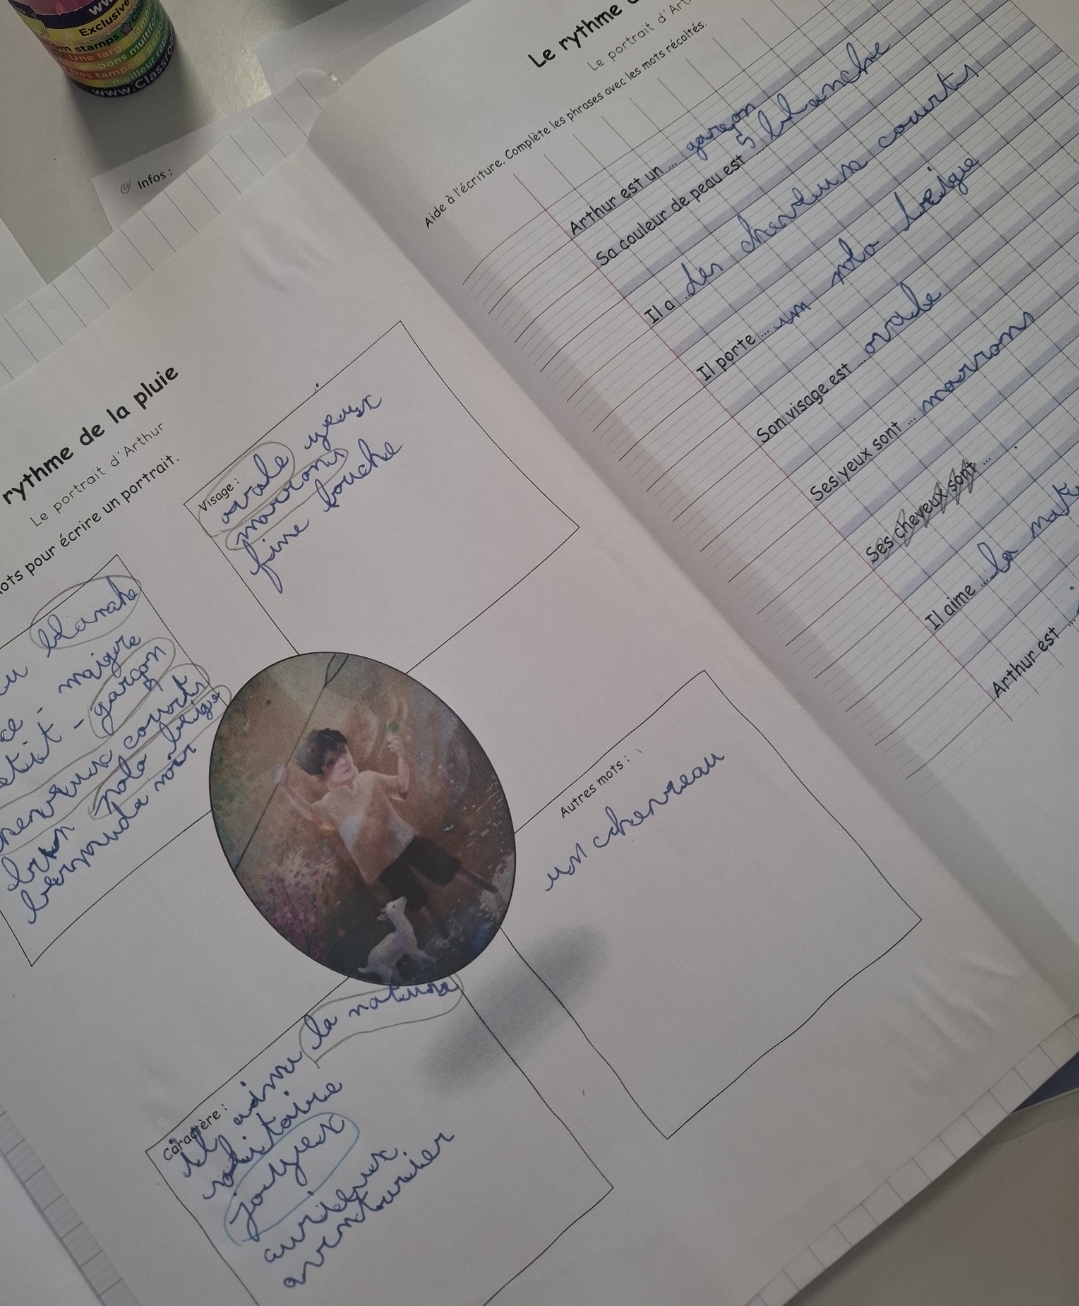 Exclusive
www.Class
Infos :
rythme de la pluie
Le portrait d'Arthur
mots pour écrire un portrait.
blanche
maigre
garçon
cheveux courts
brun polo beige
bermuda noir
Visage :
ovale yeux
marrons
fine bouche
Autres mots :
un chevreau
Caractère :
il aime la nature
solitaire
joyeux
curieux
aventurier
Le rythme
Le portrait d'Arth
Aide à l'écriture. Complète les phrases avec les mots récoltés.
Arthur est un ... garçon
Sa couleur de peau est ... blanche
Il a ... des cheveux courts
Il porte ... un polo beige
Son visage est ... ovale
Ses yeux sont ... marrons
Ses cheveux sont ...
Il aime ... la nat
Arthur est ...